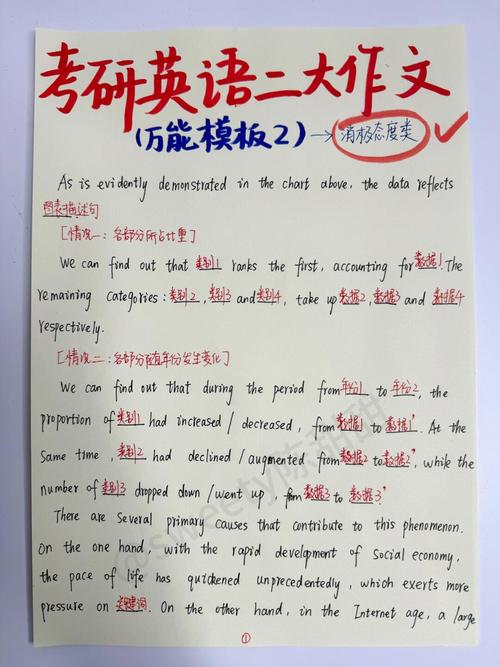 考研英语二大作文
(万能模板2)→消极态度类
As is evidently demonstrated in the chart above, the data reflects
图表描述句
[情况一：各部分所占比重]
We can find out that 类别1 ranks the first, accounting for 数据1. The
remaining categories: 类别2, 类别3 and 类别4, take up 数据2, 数据3 and 数据4
respectively.
[情况二：各部分随年份发生变化]
We can find out that during the period from 年份1 to 年份2, the
proportion of 类别1 had increased / decreased, from 数据1 to 数据1'. At the
same time, 类别2 had declined / augmented from 数据2 to 数据2', while the
number of 类别3 dropped down / went up, from 数据3 to 数据3'
There are several primary causes that contribute to this phenomenon.
On the one hand, with the rapid development of social economy,
the pace of life has quickened unprecedentedly, which exerts more
pressure on 关键词. On the other hand, in the Internet age, a large
①